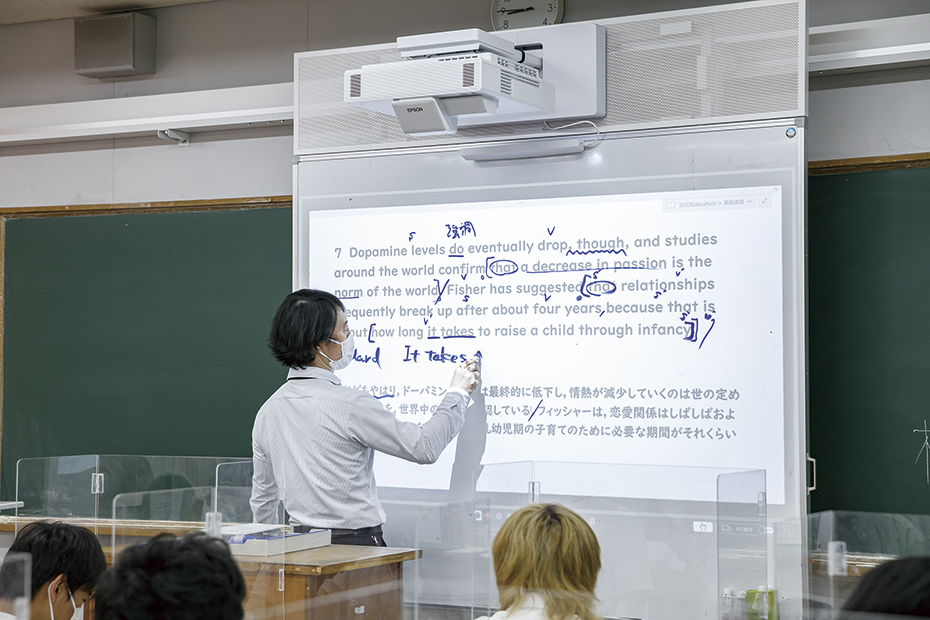 EPSON
強調
7 Dopamine levels do eventually drop, though, and studies
around the world confirm that a decrease in passion is the
norm of the world. Fisher has suggested that relationships
equently break up after about four years, because that is
out how long it takes to raise a child through infancy.
dard It takes
もやはり，ドーパミン は最終的に低下し，情熱が減少していくのは世の定め
を，世界中の 認している フィッシャーは，恋愛関係はしばしばおよ
乳幼児期の子育てのために必要な期間がそれくらい